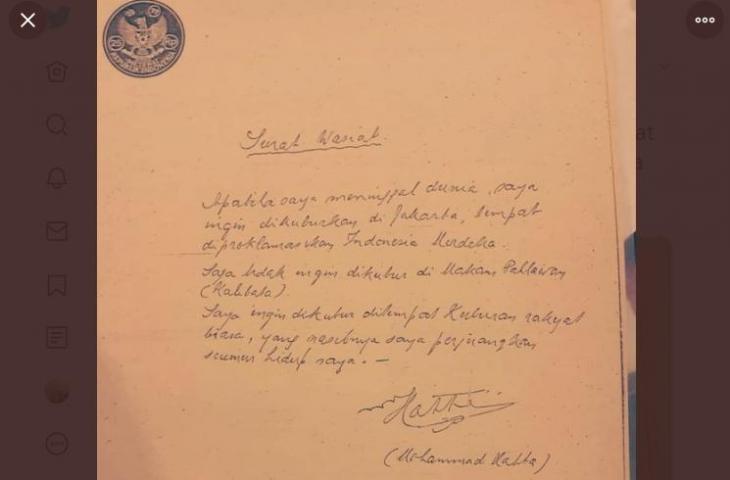 Surat Wasiat.
Apabila saya meninggal dunia, saya
ingin dikuburkan di Jakarta, tempat
diproklamasikan Indonesia Merdeka.
Saya tidak ingin dikubur di Makam Pahlawan
(Kalibata).
Saya ingin dikubur ditempat Kuburan rakyat
biasa, yang nasibnya saya perjuangkan
seumur hidup saya. —
Hatta
(Mohammad Hatta)